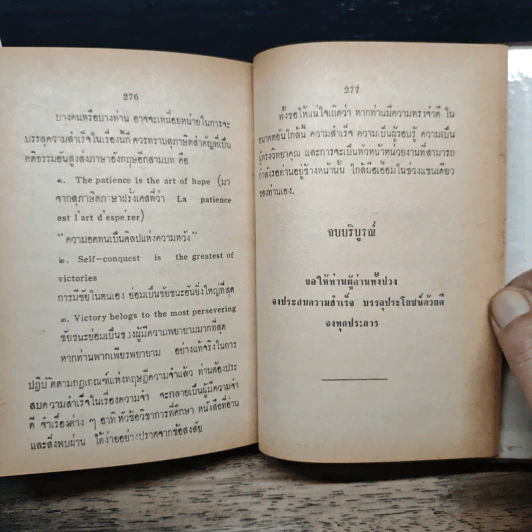 276
บางคนหรือบางท่าน อาจจะเหนื่อยหน่ายในการจะ
บรรลุความสำเร็จในเรื่องนี้ก็ ควรทราบสุภาษิตสำคัญที่เป็น
คติธรรมอันสูงส่งภาษาอังกฤษอีกสามบท คือ
๑. The patience is the art of hope (มา
จากสุภาษิตภาษาฝรั่งเศสที่ว่า La patience
est l'art d'espe'rer)
"ความอดทนเป็นศิลปแห่งความหวัง"
๒. Self-conquest is the greatest of
victories
การมีชัยในตนเอง ย่อมเป็นชัยชนะอันยิ่งใหญ่ที่สุด
๓. Victory belongs to the most persevering
ชัยชนะย่อมเป็นของผู้มีความพยายามมากที่สุด
หากท่านพากเพียรพยายาม อย่างแท้จริงในการ
ปฏิบัติตามกฎเกณฑ์แห่งทฤษฎีความจำแล้ว ท่านต้องประ
สบความสำเร็จในเรื่องความจำ จะกลายเป็นผู้มีความจำ
ดี จำเรื่องต่าง ๆ อาทิ หัวข้อวิชาการที่ศึกษา หนังสือที่อ่าน
และสิ่งพบผ่าน ได้ง่ายอย่างปราศจากข้อสงสัย
277
ทั้งขอให้แน่ใจเถิดว่า หากท่านมีความทรงจำดี ใน
อนาคตอันใกล้นี้ ความสำเร็จ ความเป็นผู้รอบรู้ ความเป็น
ผู้ทรงวิทยาคุณ และการจะเป็นหัวหน้าหน่วยงานที่สามารถ
กำลังรอท่านอยู่ข้างหน้านั้น ใกล้มือเอื้อมในช่วงแขนเดียว
ของท่านเอง.
จบบริบูรณ์
ขอให้ท่านผู้อ่านทั้งปวง
จงประสบความสำเร็จ บรรลุประโยชน์ด้วยดี
จงทุกประการ